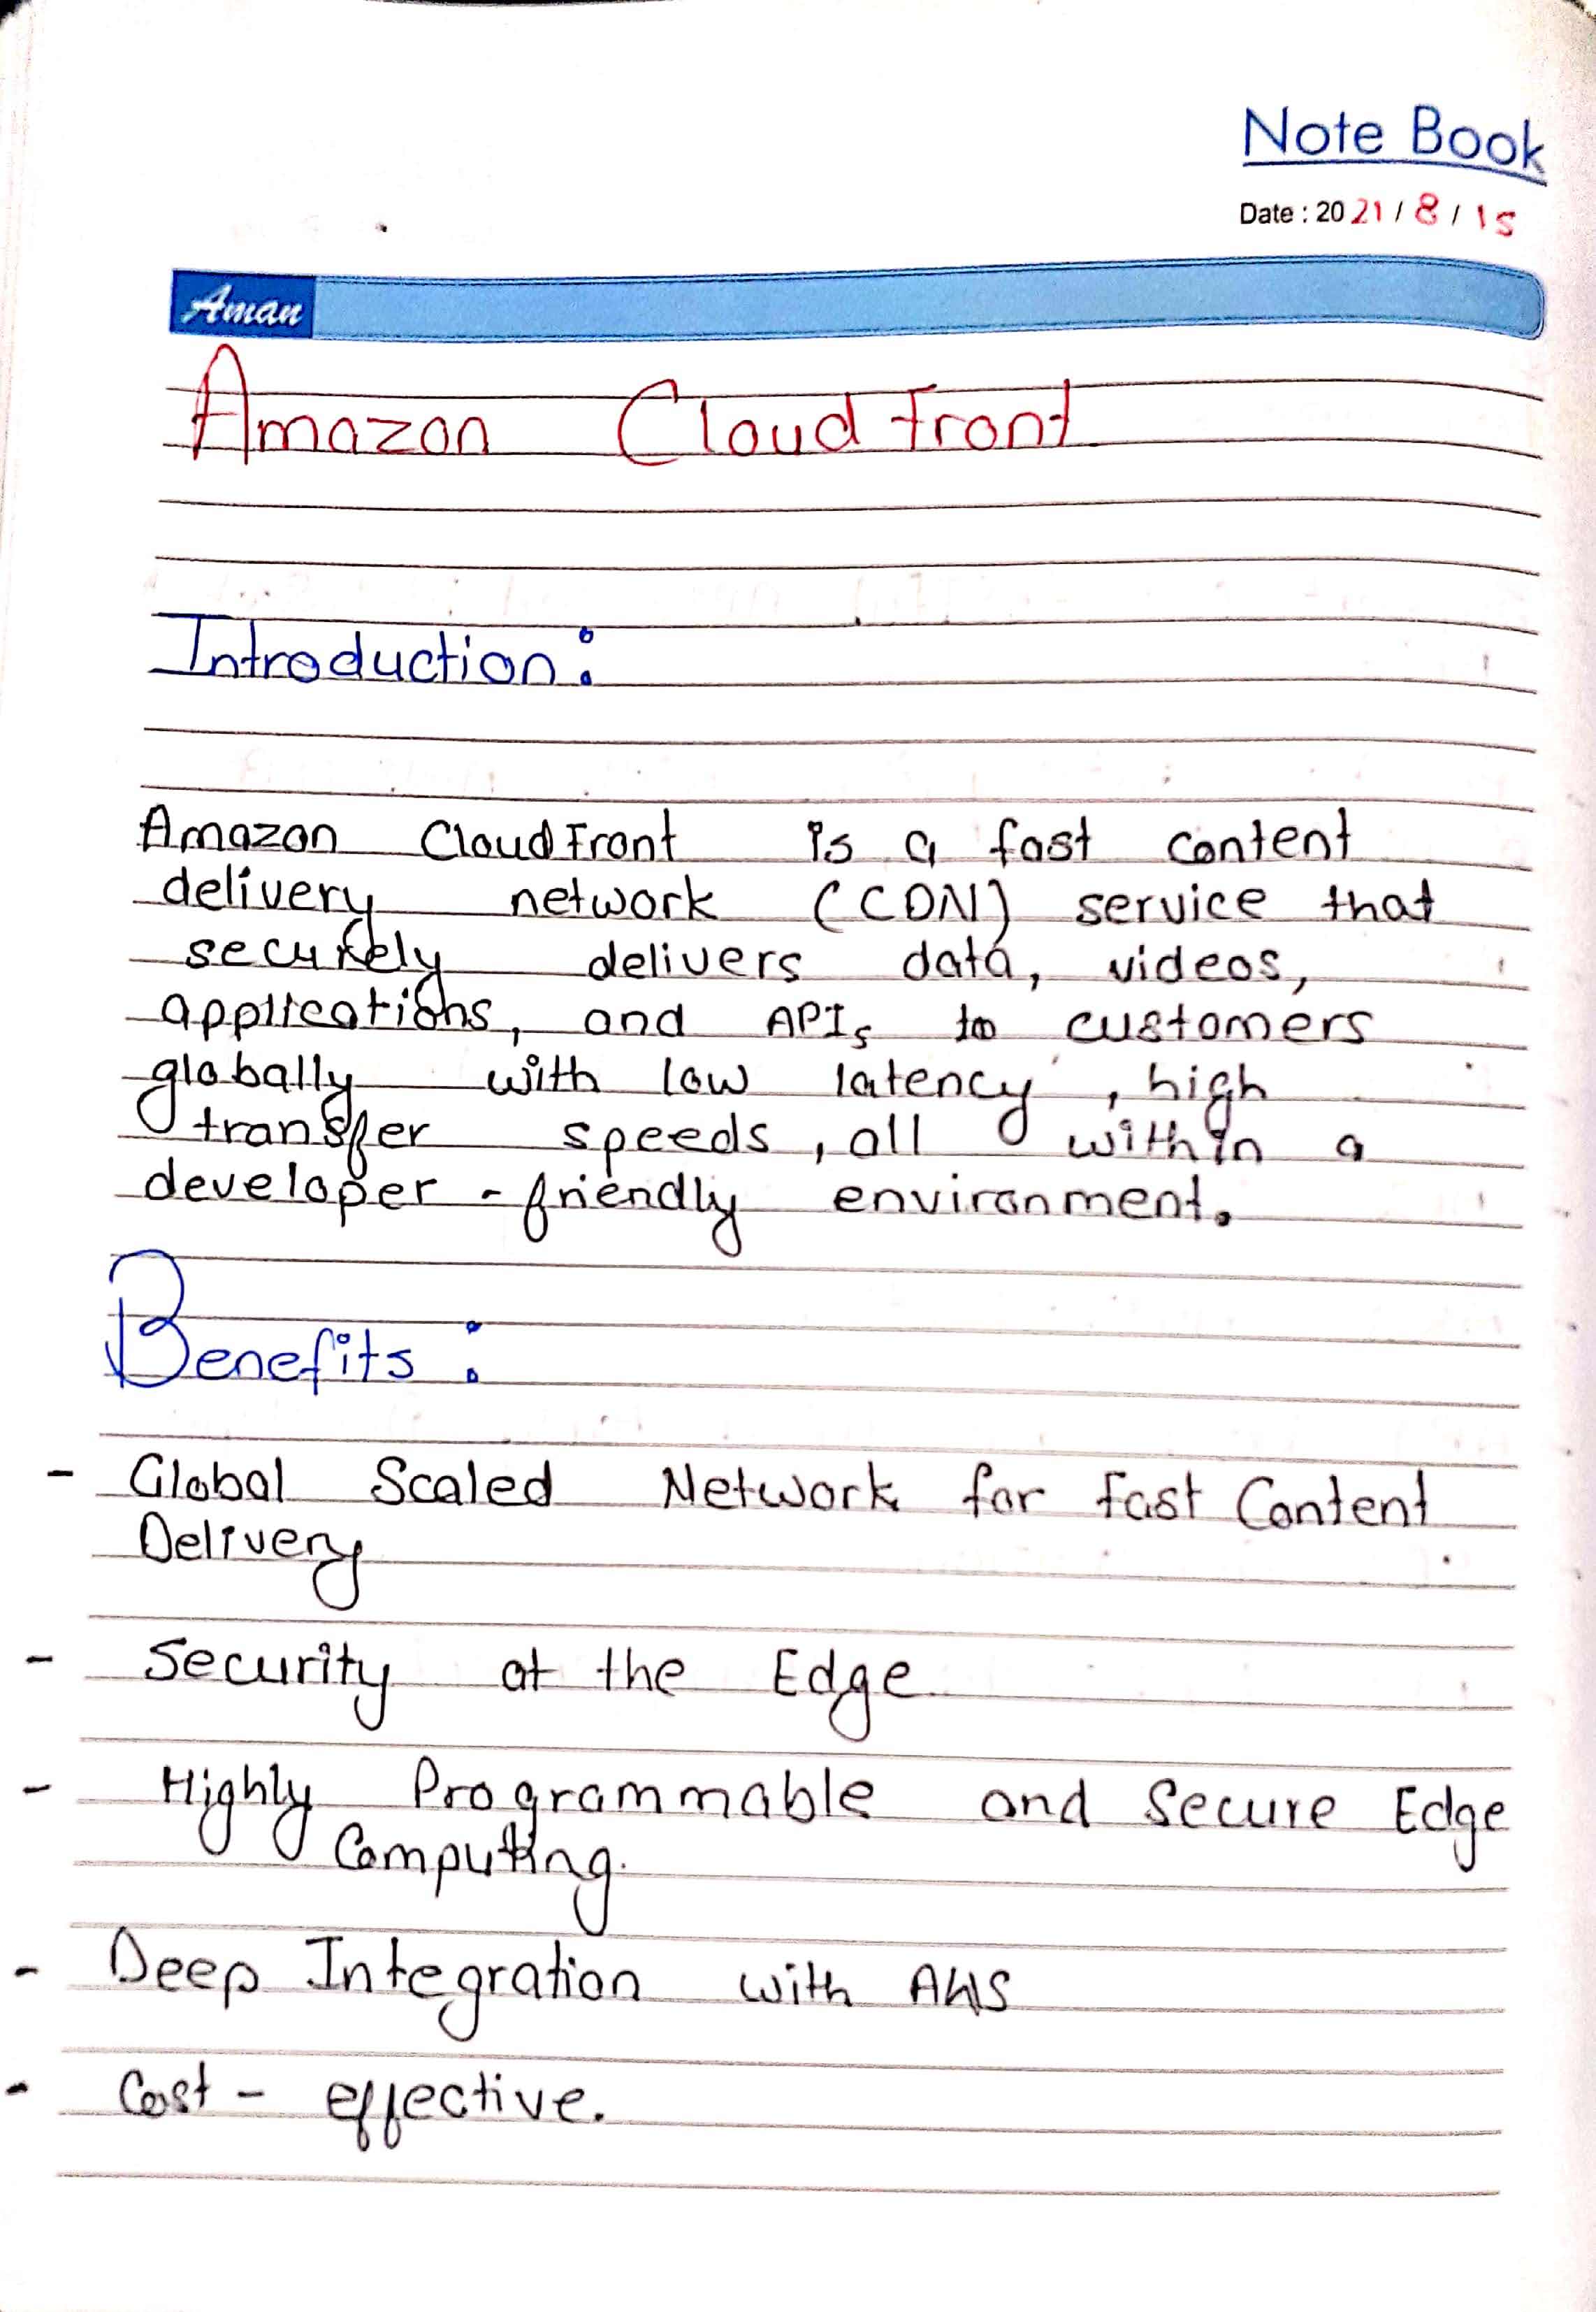 Note Book
Date : 2021 / 8 / 15
Aman
Amazon CloudFront
Introduction:
Amazon CloudFront is a fast content
delivery network (CDN) service that
securely delivers data, videos,
applications, and APIs to customers
globally with low latency, high
transfer speeds, all within a
developer-friendly environment.
Benefits:
- Global Scaled Network for Fast Content
Delivery
- Security at the Edge
- Highly Programmable and Secure Edge
Computing.
- Deep Integration with AWS
- Cost-effective.